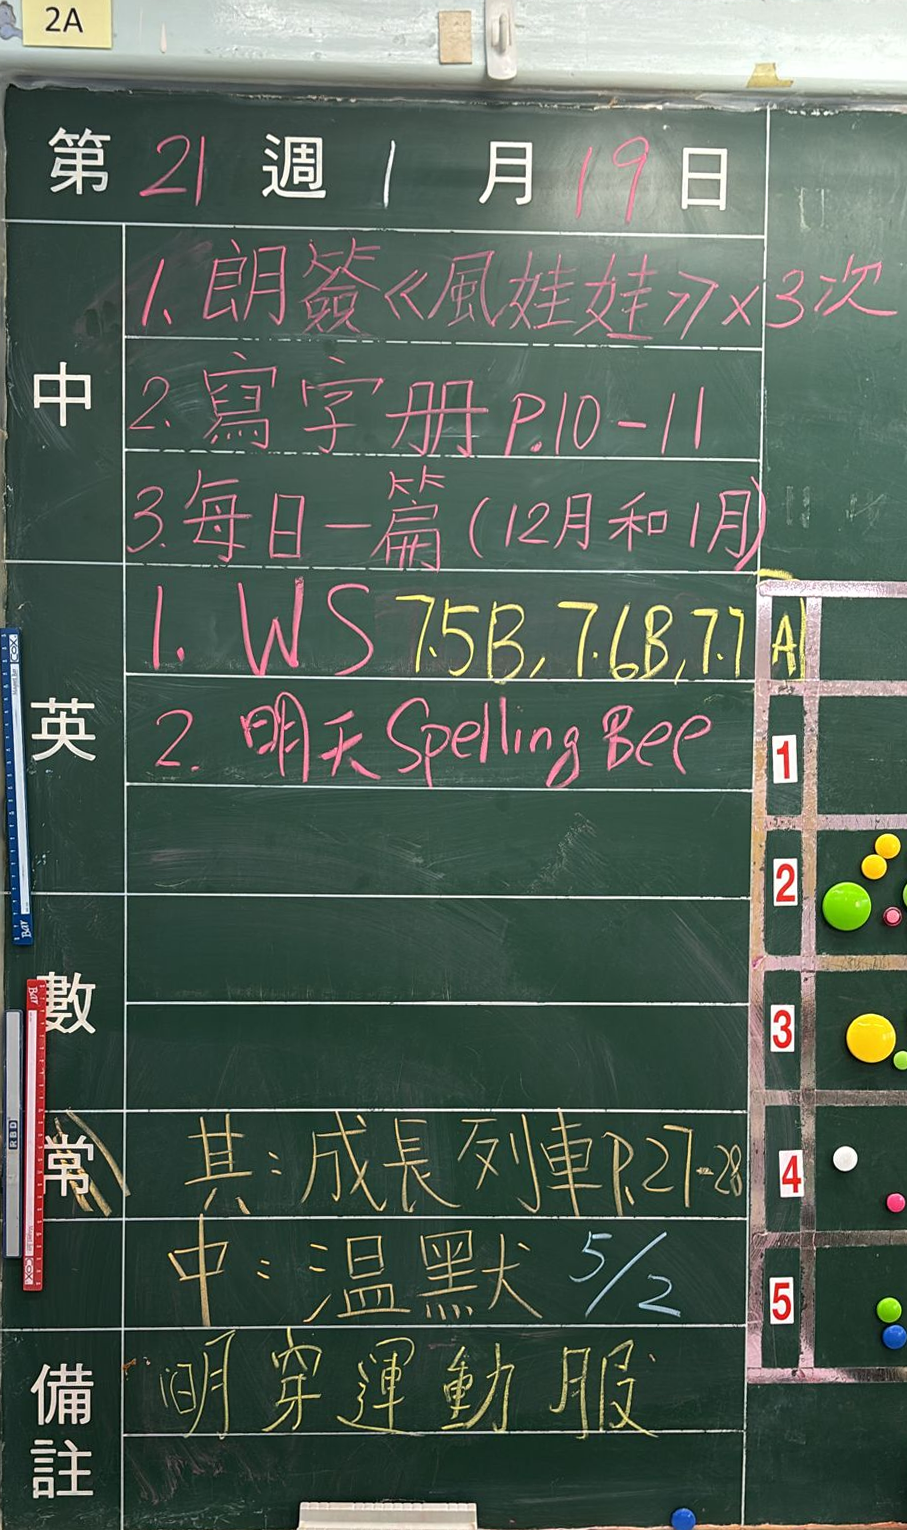 2A
第 21 週 1 月 19 日
中
1. 朗簽《風娃娃》x3次
2. 寫字册 P.10-11
3. 每日一篇(12月和1月)
英
1. WS 7.5B, 7.6B, 7.7A
2. 明天 Spelling Bee
數
常
共: 成長列車 P.27-28
中: 温默 5/2
備註
明穿運動服
1
2
3
4
5
COX
Bar
Bar
RBD
COX